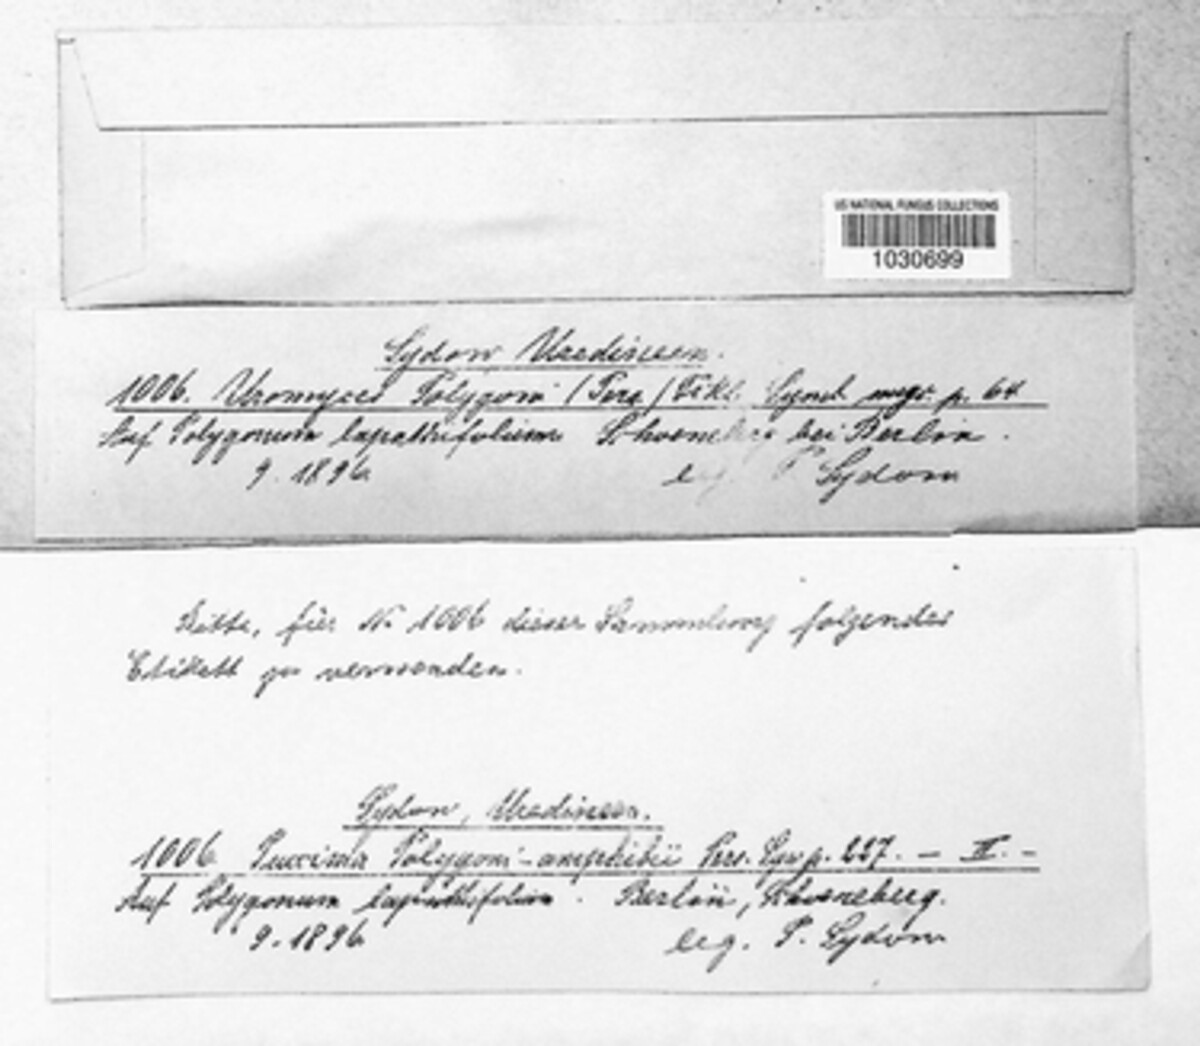 US NATIONAL FUNGUS COLLECTIONS
1030699
Sydow Uredineen.
1006. Uromyces Polygoni (Pers.) Fckl. Symb. myc. p. 64
Auf Polygonum lapathifolium Schoeneberg bei Berlin.
9.1896 leg. P. Sydow
Bitte, für No 1006 dieser Sammlung folgendes
Etikett zu verwenden.
Sydow, Uredineen.
1006 Puccinia Polygoni-amphibii Pers. Syn. p. 227. — II. —
Auf Polygonum lapathifolium. Berlin, Schoeneberg.
9.1896 leg. P. Sydow